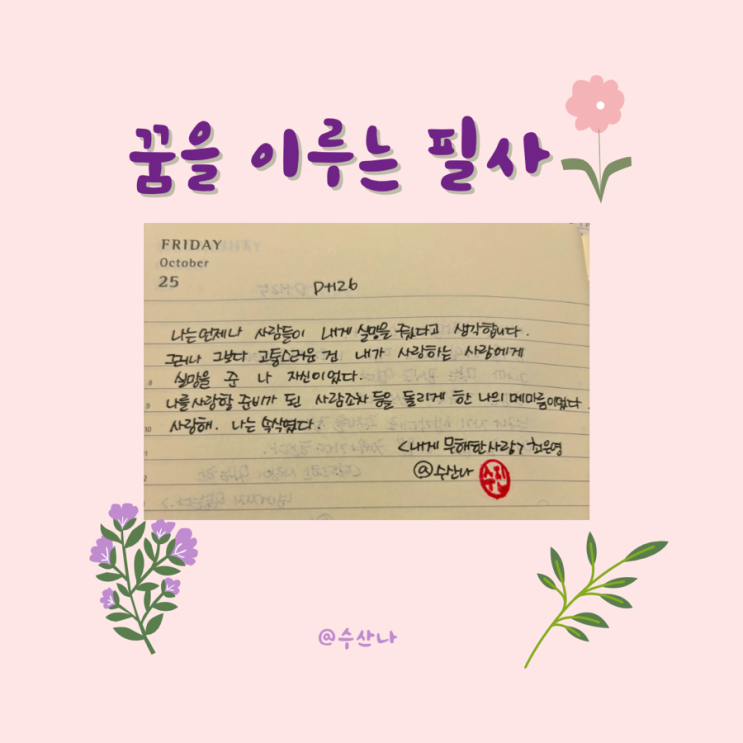 꿈을 이루는 필사
FRIDAY
October
25
D+126
나는 언제나 사람들이 내게 실망을 줬다고 생각합니다.
그러나 그보다 고통스러운 건 내가 사랑하는 사람에게
실망을 준 나 자신이었다.
나를 사랑할 준비가 된 사람조차 등을 돌리게 한 나의 메마름이었다.
사랑해. 나는 속삭였다.
<내게 무해한 사람> 최은영
@수산나
@수산나